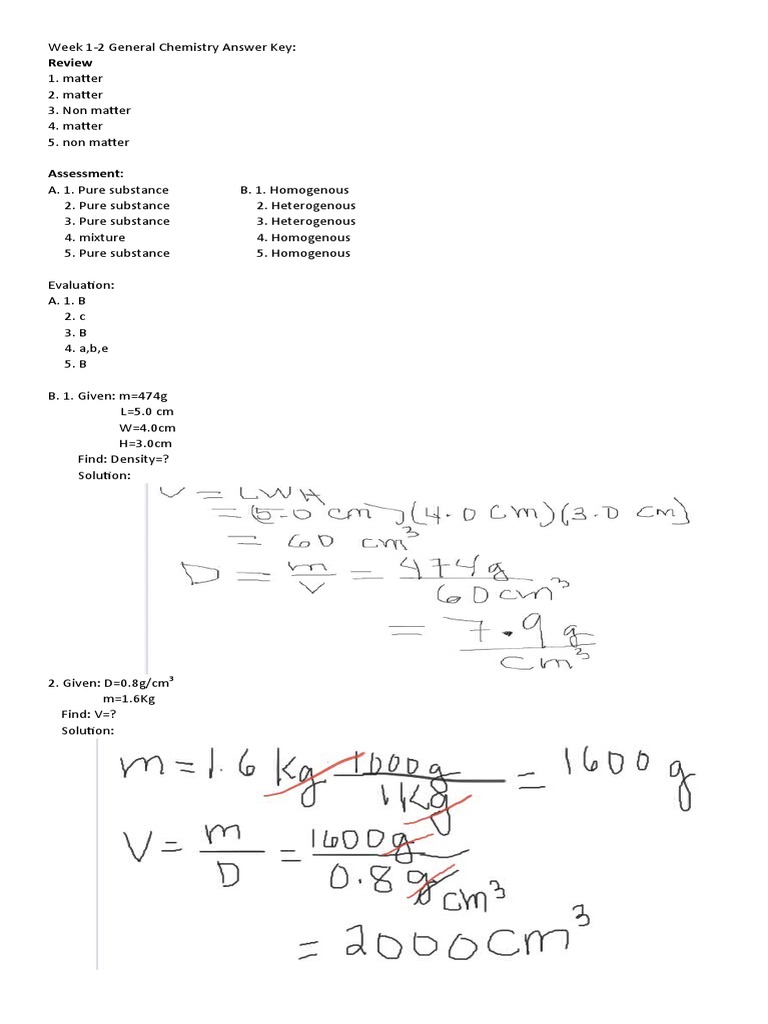 Week 1-2 General Chemistry Answer Key:
Review
1. matter
2. matter
3. Non matter
4. matter
5. non matter
Assessment:
A. 1. Pure substance
2. Pure substance
3. Pure substance
4. mixture
5. Pure substance
B. 1. Homogenous
2. Heterogenous
3. Heterogenous
4. Homogenous
5. Homogenous
Evaluation:
A. 1. B
2. c
3. B
4. a,b,e
5. B
B. 1. Given: m=474g
L=5.0 cm
W=4.0cm
H=3.0cm
Find: Density=?
Solution:
V = LWH
= (5.0 cm)(4.0 cm)(3.0 cm)
= 60 cm³
D = m/V = 474g/60cm³
= 7.9 g/cm³
2. Given: D=0.8g/cm³
m=1.6Kg
Find: V=?
Solution:
m = 1.6 kg 1000g/1kg = 1600 g
V = m/D = 1600g/0.8 g/cm³
= 2000cm³